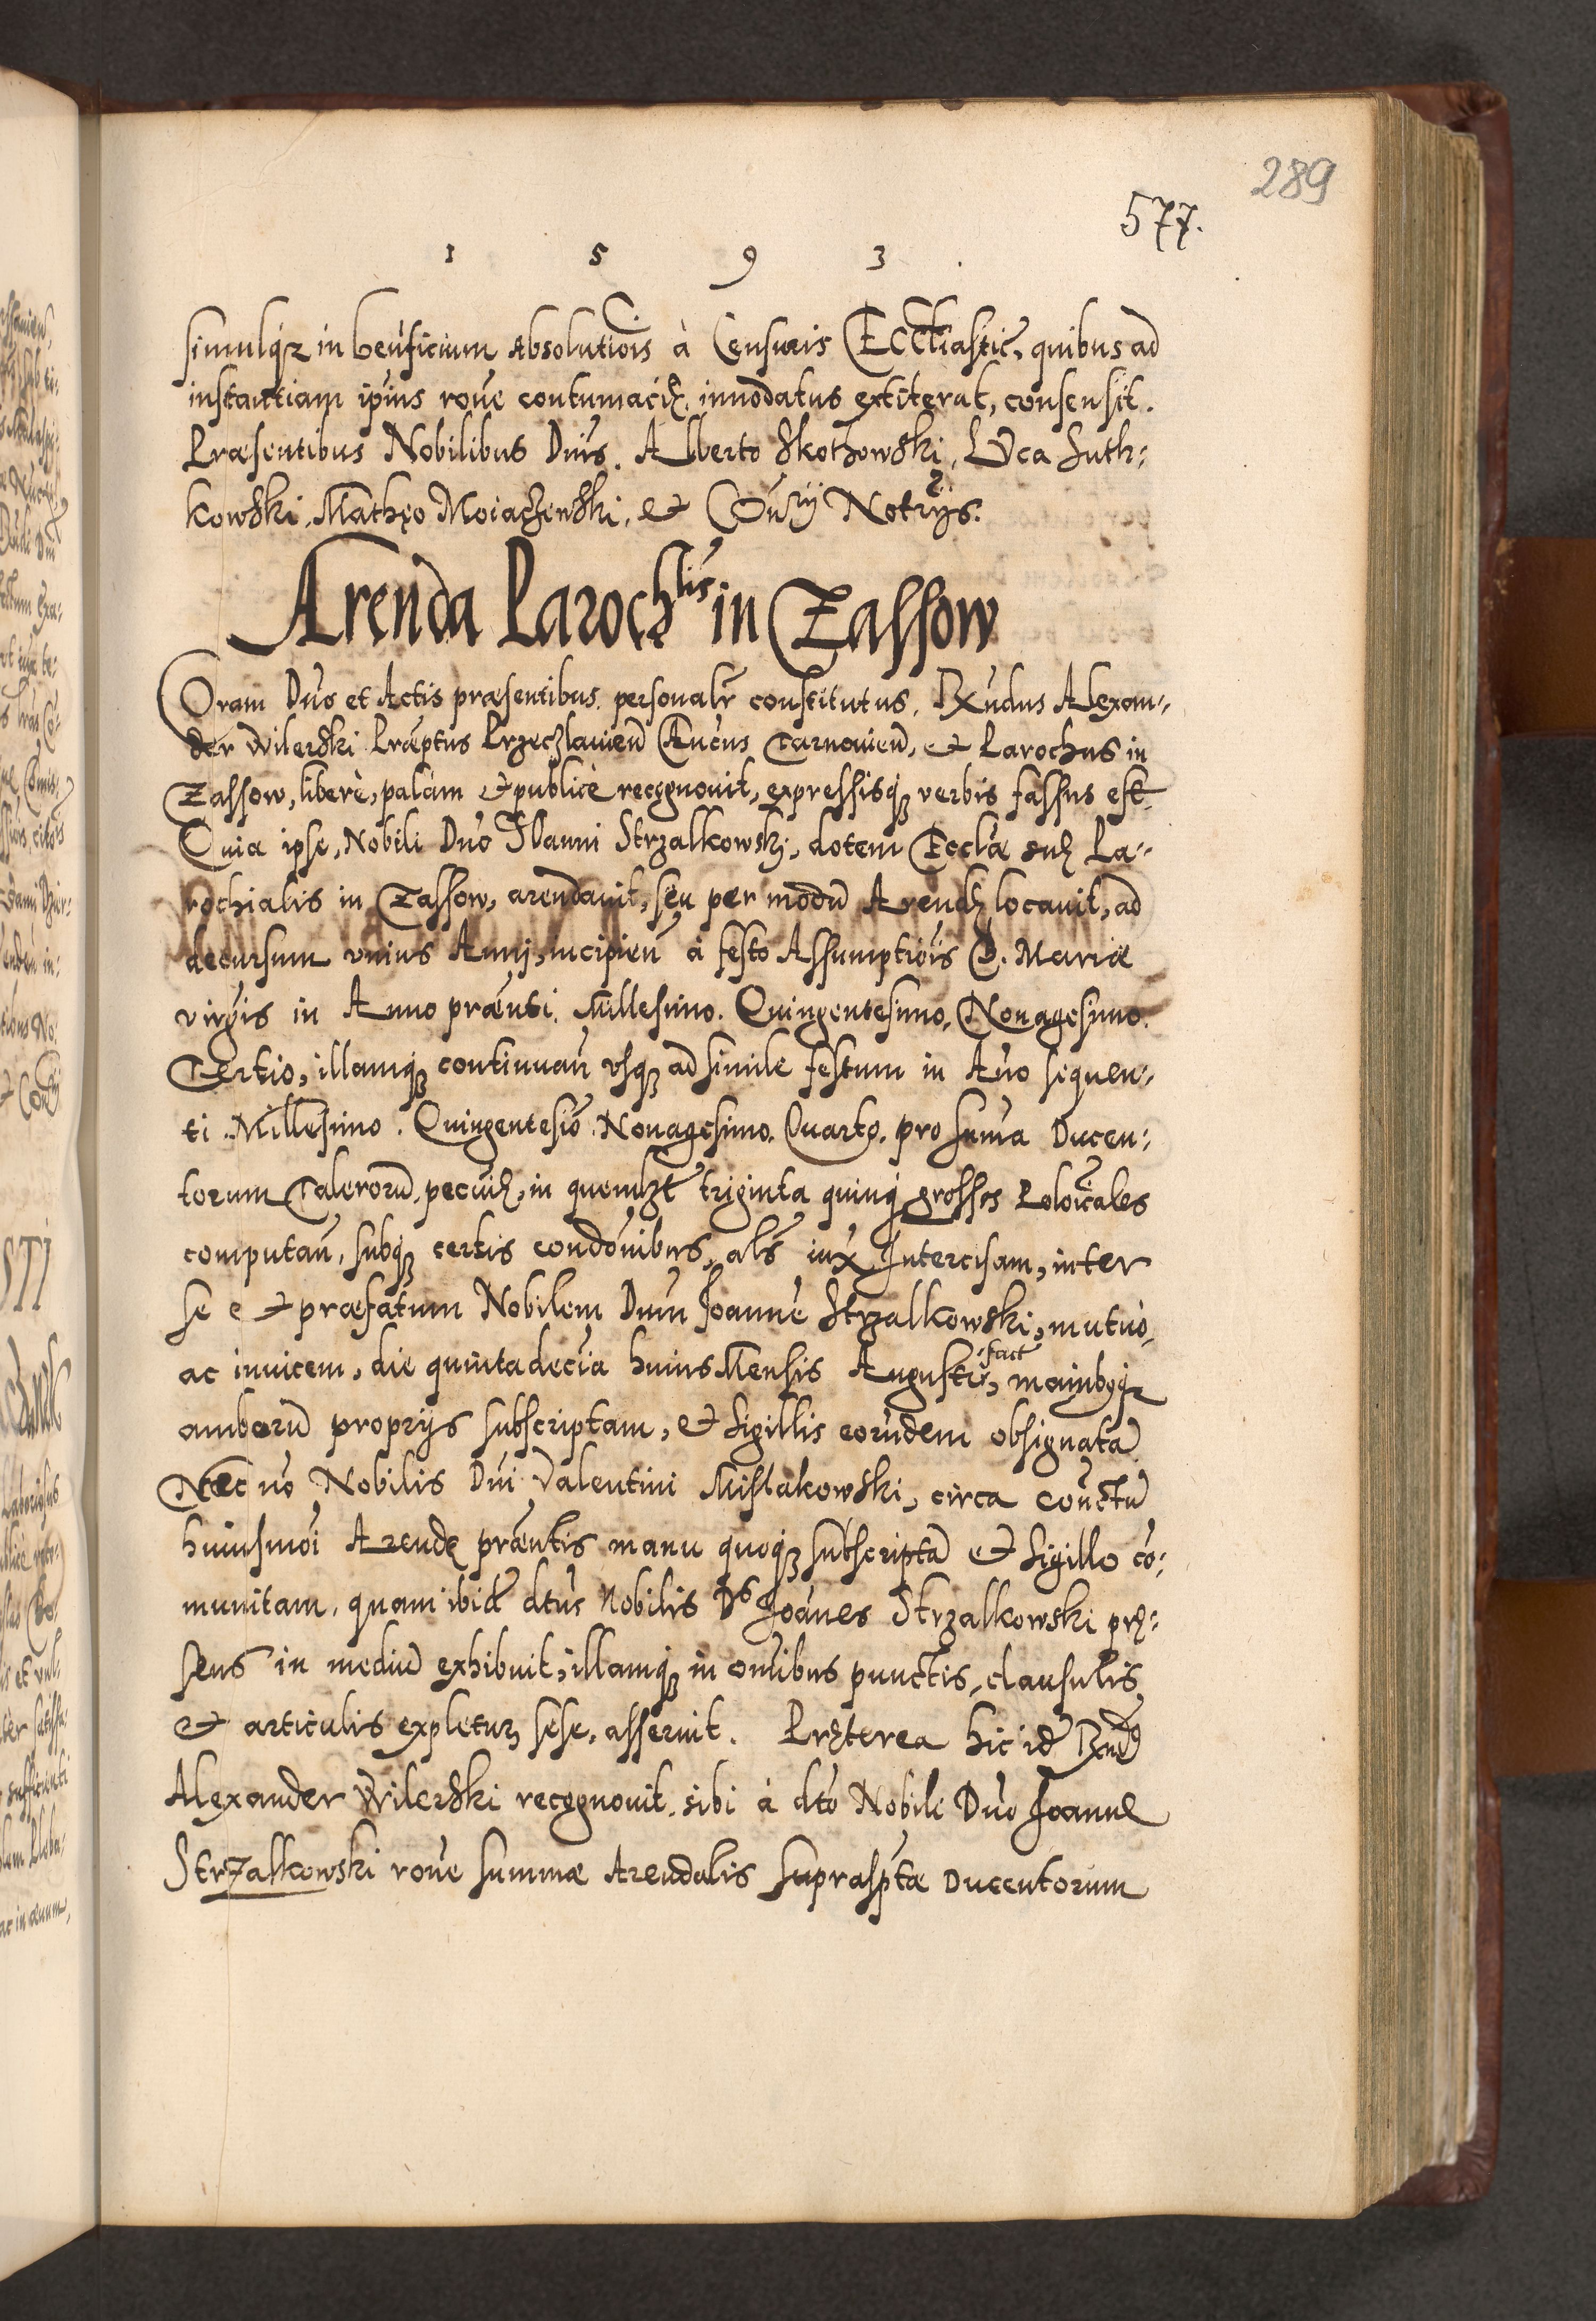 289
577.
1 5 9 3
simulq̃ in beñficium Absolutiõis à Censuris Eccl̃iastic̃, quibus ad
instantiam ipĩus rõne contumacię innodatus extiterat, consensit.
Præsentibus Nobilibus Dñis. Alberto Skothowski, Luca Luth:
kowski, Mathęo Moiaczewski, et Coñrij Notrijs.
Arenda Paroch̃lis in Zassow
Coram Dño et Actis præsentibus personalr̃ constitutus, Rx̃ndus Alexan„
der Wilerski Præptus Przeczlauieñ Cañcus Tarnouieñ, et Parochus in
Zassow, liberè, palàm et publicè recognouit, expressisq̃ verbis fassus est
Quia ipse, Nobili Dño Ioanni Strzalkowski, dotem Eccl̃æ suę Pa„
rochialis in Zassow, arendauit, seu per modũ Arendę locauit, ad
decursum vnius Annj, incipieñ à festo Assumptiõis B. Mariæ
virg̃is in Anno præñti. Millesimo. Quingentesimo. Nonagesimo.
Tertio, illamq̃ continuañ vsq̃ ad simile festum in Año sequen„
ti Millesimo. Quingentesiõ. Nonagesimo. Quarto. pro sum̃a Ducen:
torum Talerorũ, pecuñię, in quemlz̃t triginta quinq̃ grossos Poloñicales
computañ, subq̃ certis condoñibus, al̃s iux̃ Intercisam, inter
se e et præfatum Nobilem Dñm Joannẽ Strzalkowski, mutuò,
ac inuicem, die quintadecĩa huius Mensis Augusti, fact̃ mañibusq̃
amborũ proprijs subscriptam, et Sigillis eorũdem obsignatã
Nec nõ Nobilis Dñi Valentini Mislakowski, circa coñctũ
huiusmõi Arendę præñtis manu quoq̃ subscriptã et Sigillo cõ:
munitam, quam ibidẽ dtũs Nobilis Dñs Joañes Strzalkowski prę:
sens in mediũ exhibuit, illamq̃ in oñibus punctis, clausulis,
et articulis expleturũ sese, asseruit. Pręterea hic idẽ Rx̃nds
Alexander Wilerski recognouit, sibi à dtõ Nobili Dño Joanne
Strzalkowski rõne summæ Arendalis suprasp̃tæ Ducentorum